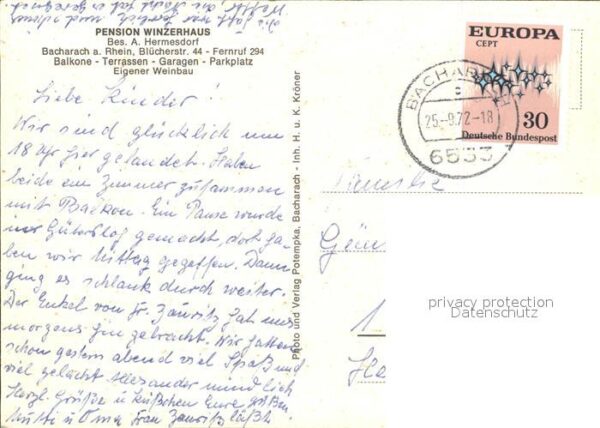 PENSION WINZERHAUS
Bes. A. Hermesdorf
Bacharach a. Rhein, Blücherstr. 44 - Fernruf 294
Balkone - Terrassen - Garagen - Parkplatz
Eigener Weinbau
Liebe Kinder!
Wir sind glücklich um
18 Uhr hier gelandet. Haben
beide ein Zimmer zusammen
mit Balkon. Ein Pause wurde
in gemacht, dort ha-
ben wir Mittag gegessen. Dann
ging es schlank durch weiter.
Der Enkel von Fr. hat uns
morgens hin gebracht. Wir hatten
schon gestern abend viel Spaß und
viel gelacht. Alles andere mündlich
Herzl. Grüße u. Küßchen Eure
Mutti u Oma Frau läßt
Photo und Verlag Potempka, Bacharach - Inh. H. u. K. Kröner
EUROPA
CEPT
30
Deutsche Bundespost
BACHARACH
25-9.72-18
6533
Familie
Gün
1
privacy protection
Datenschutz